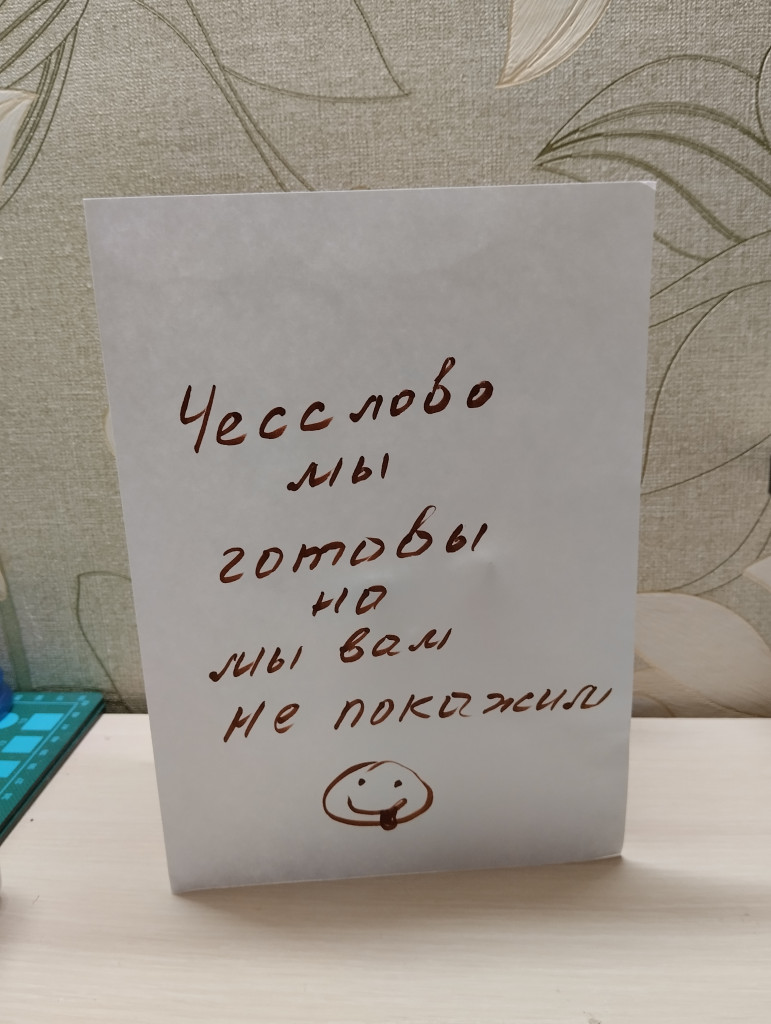 Чесслово
мы
готовы
но
мы вам
не покажим